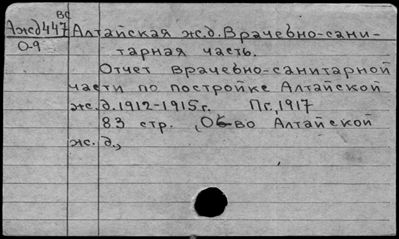 ВС
Ажд447 Алтайская ж.д. Врачебно-сани-
О-9 тарная часть.
Отчет врачебно-санитарной
части по постройке Алтайской
ж.д. 1912-1915г. Пг., 1917
83 стр. (Об-во Алтайской
ж.д.,